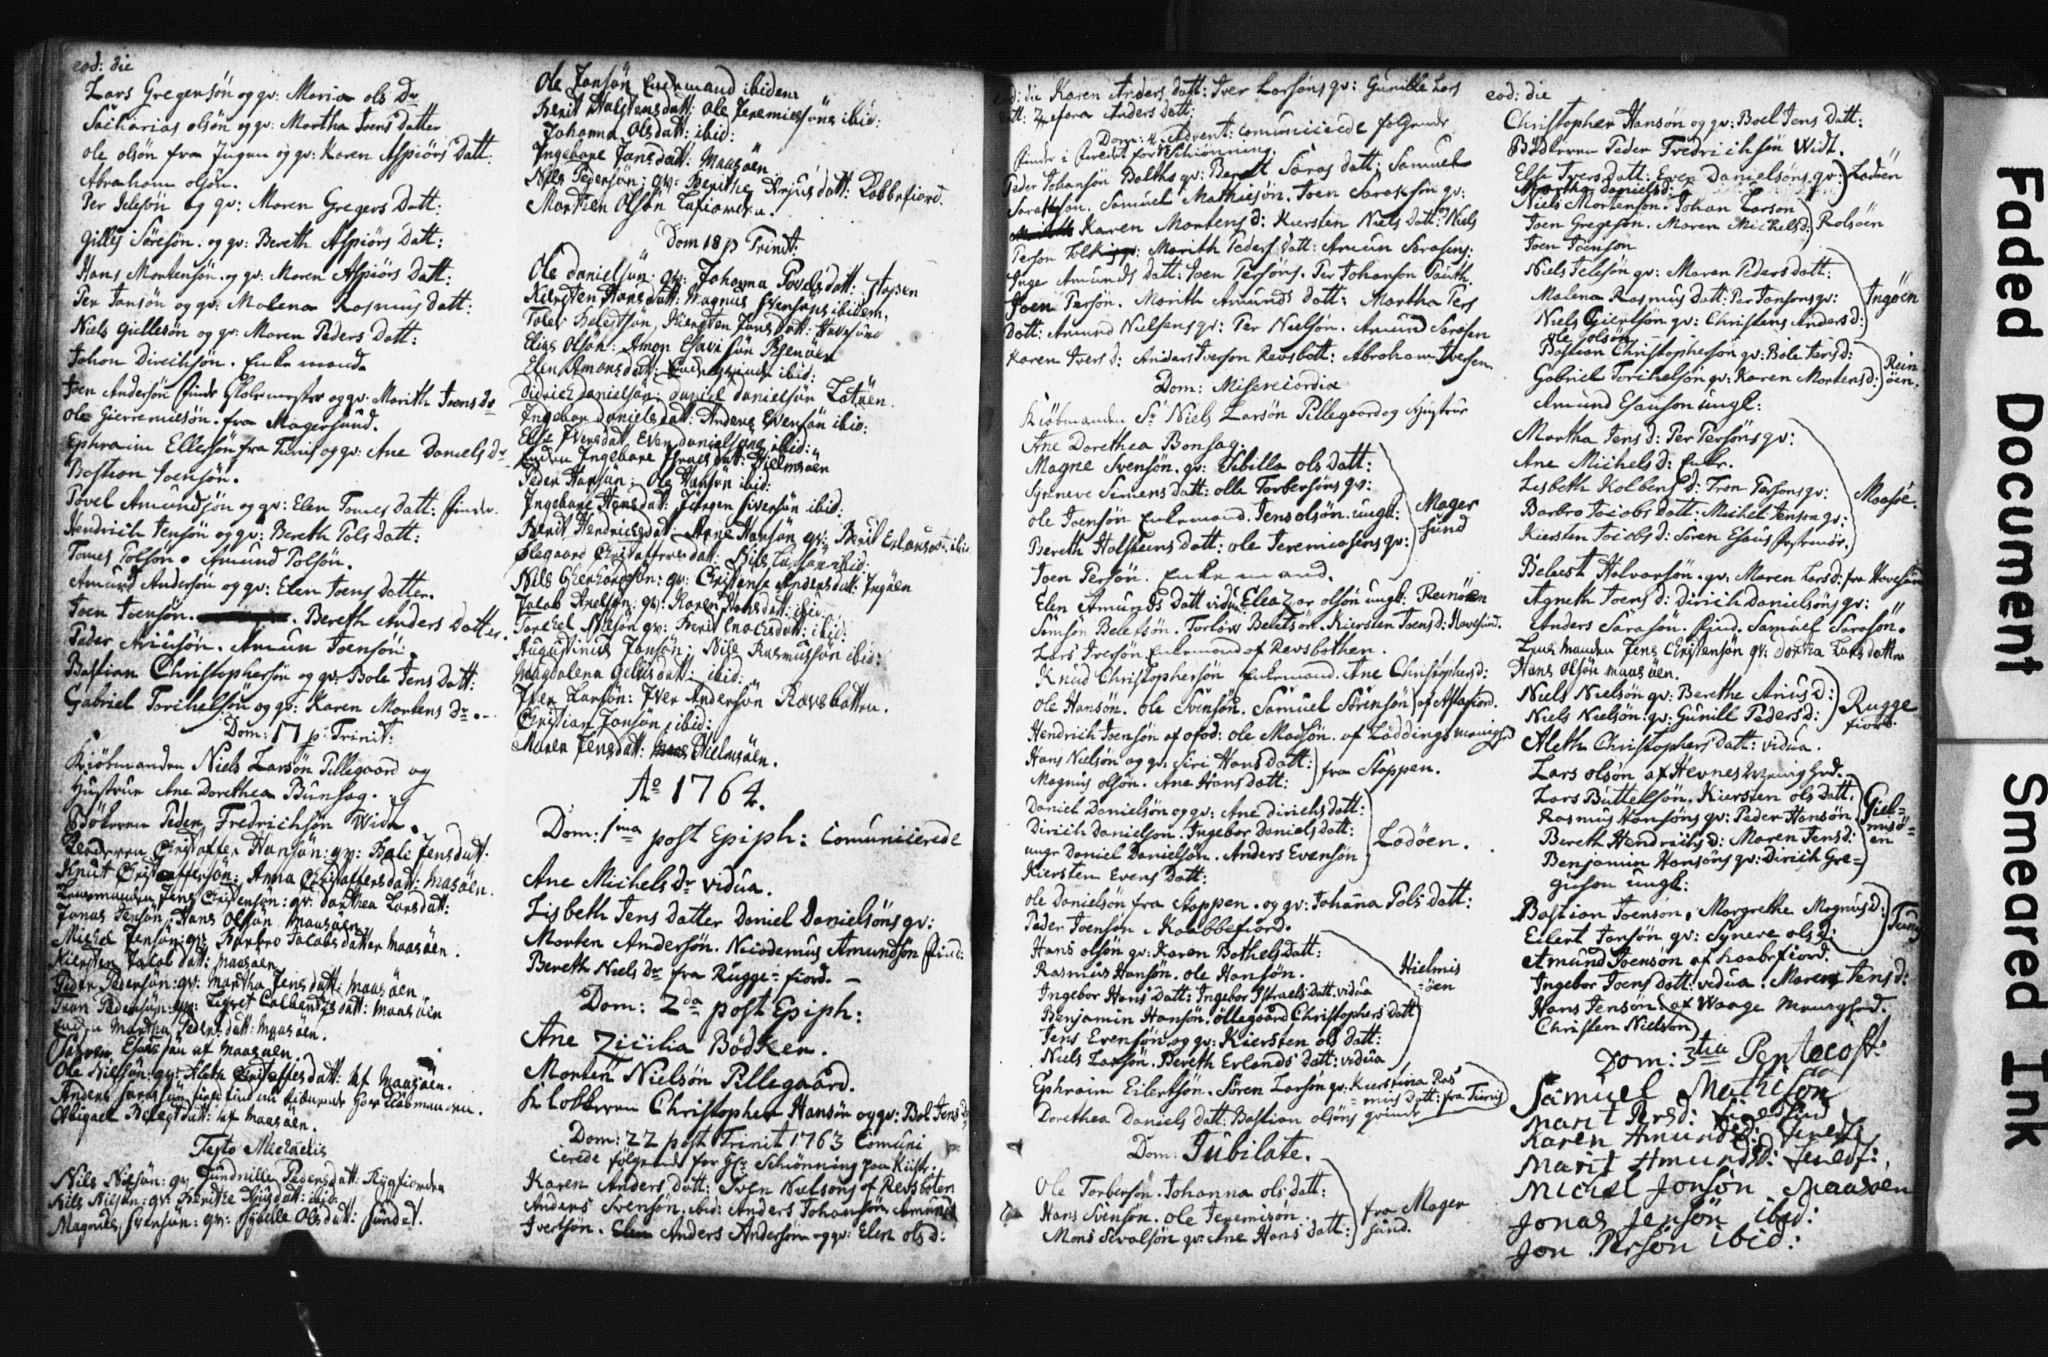 eod: die
Lars Gregersön og gv: Maria ols Dr
Sacharias olsön og gv: Martha Joens Datter
ole olsön fra og gv: Karen Aspiörs Datt:
Abraham olsön.
Per og gv: Maren Gregers Datt:
Gilles Söresön. og gv: Bereth Aspiörs Datt:
Hans Mortensön. og gv: Maren Aspiörs Datt:
Per Jansön og gv: Malena Rasmus Datt:
Niels Gillesön og gv: Maren Peders Datt:
Johan Dirichsön. Enkemand.
Joen Andersön og gv: Marith Joens Dr
ole Gierremiesön. fra Magersund.
Ephraim Ellersön fra Tunis og gv: Ane Daniels Dr
Bastian Joensön.
Povel Amundsön og gv: Elen Tomes Datt:
Hendrich Jensön og gv: Bereth Pols Datt:
Tomes Polsön. Amund Polsön.
Amund Andersön og gv: Elen Joens Datter.
Joen Joensön. Bereth Anders Datter.
Peder Ariusön. Amun Joensön.
Bastian Christophersön og gv: Bole Jens Datt:
Gabriel Torichelsön og gv: Karen Mortens Dr.
Dom: 17 p: Trinit:
Kiöbmanden Niels Larsön Pillegaard og
Hustrue Ane Dorethea Bunsag.
Bödkeren Peder Fredrichsön Widt.
Christoffer Hansön: gv: Bole Jensdatt:
Knut Christoffersön: Anna Christoffersdatt: Masöen.
Jens Christensön: gv: Dorthea Larsdatt:
Jonas Jensön, Hans Olsön Maasöen.
Michel Jensön: gv: Barbro Jacobs datter Maasöen.
Kiersten Jacob datt: Maasöen
Peder Pedersön: gv: Martha Jens datt: Maasöen
Tron Pedersön: gv: datt: Maasöen
Martha Peders datt: Maasöen.
Sören af Maasöen.
Ole Nilssön: gv: Aleth datt: af Maasöen.
Anders Sarasön
Abigael datt: af Maasöen.
Festo Michaelis
Nils Nielsön: gv: Gundnille Pedersdatt: Rigfiorden
Nils Nilsön: gv: Berithe Ariusdatt: ibid:
Magnus Svensön: gv: Sybille Olsdatt: Sundet.
Ole Jansön Enkemand ibidem
Berit Halstensdatt: Ole Jeremiessöns ibid:
Johanna Olsdatt: ibid:
Ingebore Jansdatt: Maasöen
Nils Pedersön: gv: Berithe Ariusdatt: Kobbefiord.
Morthen Olsön
Dom 18 p Trinit:
Ole Danielsön: gv: Johanna Povelsdatt: Stopen
Kiersten Hansdatt: Magnus Svensöns ibidem.
Kiersten Jansdatt: Havesund
Elias Olsön: Amon Esavisön Resenöen
Elen Amonsdatt: ibid:
Didrich Danielsön: Daniel Danielsön Latöen.
Ingebor Danielsdatt: Anders Evensön ibid:
Else Iversdat, Even Danielsöns ibid:
Enken Ingebore Israelsdatt: Hielmsöen
Peder Hansön: Ole Hansön ibid:
Ingebore Hansdatt: Jörgen Siversön ibid:
Berit Hendrichsdat: Arne Hansön gv: Berit Erlansdt: ibid
Olegaard Christoffersdatt: Nils Larsön ibid:
Nils gv: Christense Andersdatt: Ingöen
Jacob Axelsön: gv: Karen Hansdatt: ibid:
Torchel Nilsön gv: Berit Enochsdatt: ibid:
Augustinus Jansön: Nils Rasmussön ibid:
Magdalena Gillisdatt: ibid:
Iver Larsön: Iver Andersön Ravsbotten.
Christian Jonsön ibid:
Maren Jensdatt: Hielmsöen.
Ao 1764.
Dom: 1ma post Epiph: Comunicerede
Ane Michels Dr vidua.
Lisbeth Jens Datter Daniel Danielsöns gv:
Morten Andersön. Nicodemus Amundsön find:
Bereth Niels Dr fra Rugge-fiord. –
Dom: 2da post Epiph:
Ane Zicilia Bödker.
Morten Nielsön Pillegaard.
Klokkeren Christopher Hansön og gv: Bol Jens Dr
Dom: 22 post Trinit 1763 Comuni
cerede fölgende for Hr Schiönning paa Kiistr:
Karen Anders Datt: Sven Nielsöns af Revsboten
Anders Svensön. ibid: Anders Johansön Amund
Ivertsön. Anders Andersön og gv: Elen ols d:
eod: die Karen Anders Datt: Iver Larsöns gv: Gunille Lars
datt: Zefora Anders Datt:
Dom: 4: Advent: comunicerede folgende
finder i for Hr Schiönning.
Peder Johansön Balths gv: Beret Saras datt: Samuel
Saraksön. Samuel Mathiesön. Joen Saraksön gv:
Karen Mortens d: Kiersten Niels Datt: Niels
Person Marith Peders Datt: Amun Sarasens.
Inger Amunds Datt: Joen Persöns. Per Johanson
Joen Person. Marith Amunds Datt: Martha Pers
Datt: Amund Nielsens gv: Per Nielsön. Amund Sarasen
Karen Ivers d: Anders Iverson Revsbott: Abraham Iversen.
Dom: Misericordia
Kiöbmanden Sr Niels Larsön Pillegaard og Hustrue
Ane Dorethea Bonsag.
Magne Svensön. gv: Sibilla ols Datt:
Synneve Simens datt: olle Torbersöns gv:
ole Joensön Enkemand. Jens olsön. ungk:
Bereth Holsteins datt: ole Jeremiasens gv:
Mager
sund
Joen Persön. Enkemand.
Elen Amunds Datt vidua Eleazar olsön ungk: Reinöen
Simson Belessön. Torlöw Bentsön. Kiersten Joens d: Havesund.
Lars Iversön Enkemand af Revsbotten.
Knud Christophersön Enkemand. Ane Christophers d:
ole Hansön. ole Svensön. Samuel Sörensön af Altafiord.
Hendrich Joensön af ofod: ole Madsön. af Löddings menighed
Hans Nielsön og gv: Siri Hans Datt:
Magnus olsön. Ane Hans datt:
fra Stoppen.
Daniel Danielsön og gv: Ane dirichs datt:
Dirich Danielsön. Ingebor Daniels datt:
unge Daniel Danielsön. Anders Evensön
Kiersten Evens Datt:
Ladöen.
ole Danielsön fra Stoppen. og gv: Johana Pols datt:
Peder Joensön i Kaabbefiord.
Hans olsön gv: Karen Bothels datt:
Rasmus Hansön. ole Hansön.
Ingebor Hans Datt: Ingebor Israels Datt. vidua
Benjamin Hansön. öllegaard Christophers Datt
Jens Evensön og gv: Kiersten ols datt:
Niels Larsön. Bereth Erlands datt: vidua
Hielmis
=öen
Ephraim Eilertsön. Sören Larsön gv: Kurstina Ras
=mus datt: fra Tunis
Dorethea Daniels datt: Bastian olsöns qvinde
Dom: Jubilate.
Ole Torbersön. Johanna ols datt:
Hans Svensön. ole Jeremisön.
Mons Sivalsön gv: Ane Hans datt:
fra Mager
sund.
eod: die
Christopher Hansön og gv: Boel Jens datt:
Bödkeren Peder Fredrichsön Widt.
Else Ivers datt: Even Danielsöns gv:
Martha daniels d:
Ladöen
Niels Mortenson. Johan Larson
Joen Gregeson. Maren Michels d:
Joen Joensön
Rolsöen
Niels gv: Maren Peders datt:
Malena Rasmus datt: Per Jansons gv:
Niels gv: Christens Anders d:
ole olsön
Ingöen
Bastian Christophersön gv: Bole Jens d:
Gabriel Torichelsön gv: Karen Mortens d:
Rein
öen.
Amund Esauson ungk:
Martha Jens d: Per Persöns gv:
Ane Michels d: Enke.
Lisbeth Kolbens d: Tron Persons gv:
Barbro Jacobs datt: Michel Jenson gv:
Kiersten Jacobs d: Sören Esaus
Maasöe.
Belaest Halvorsön. gv: Maren Lars d: fra Havesund
Agneth Joens d: Dirich Danielsöns gv:
Anders Sarasön. find. Samuel Sarasön.
Jens Christensön gv: Dorthea Lars datter
Hans olsön Maasöen.
Niels Nielsön gv: Berethe Arius d:
Niels Nielsön. gv: Gunill Peders d:
Rugge
fiord.
Aleth Christophers datt: vidua.
Lars olsön af Hevnes Menighed.
Lars Büttelsön. Kiersten ols datt.
Rasmus Hansöns gv: Peder Hansön
Bereth Hendrichs d: Maren Jens d:
Benjamin Hansöns gv: Dirich Gre=
guson ungk:
Giel=
misö=
en
Bastian Joensön. Margrethe Magnus d:
Eilert Jansön gv: Synneve ols d:
Tunes
Amund Joenson af Kaabefiord.
Ingebor Joens Datt: vidua. Maren Jens d:
Hans Jensön af Waage Menighed.
Christen Nielson
Dom: 3tia Pentecost:
Samuel Mathison
Marit Pers d:
Karen Amunds d:
Marit Amunds d:
Michel Jonsön Maasöen
Jonas Jensön ibid:
Jon Persön ibid:
Faded Document
Smeared Ink